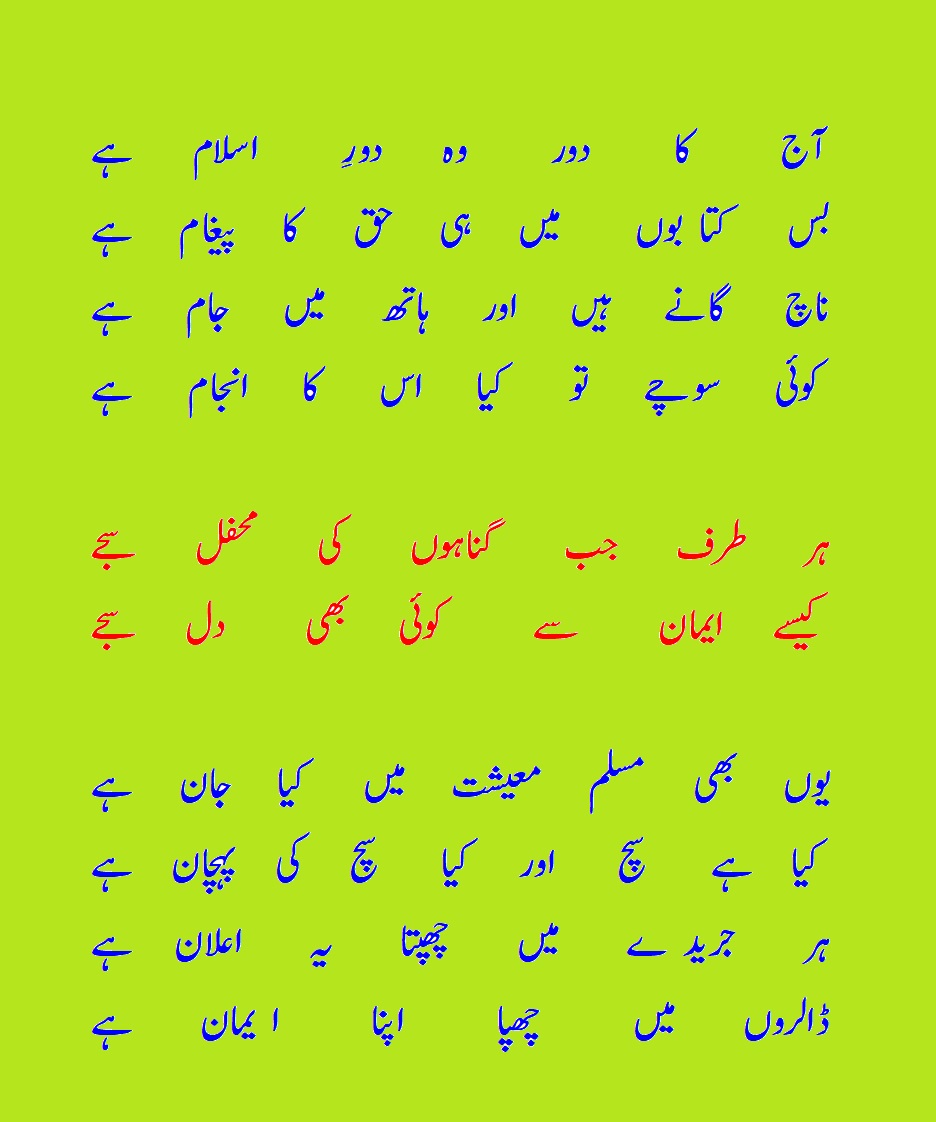 آج کا دور وہ دورِ اسلام ہے
بس کتابوں میں ہی حق کا پیغام ہے
ناچ گانے ہیں اور ہاتھ میں جام ہے
کوئی سوچے تو کیا اس کا انجام ہے
ہر طرف جب گناہوں کی محفل سجے
کیسے ایمان سے کوئی بھی دل سجے
یوں بھی مسلم معیشت میں کیا جان ہے
کیا ہے سچ اور کیا سچ کی پہچان ہے
ہر جریدے میں چھپتا یہ اعلان ہے
ڈالروں میں چھپا اپنا ایمان ہے